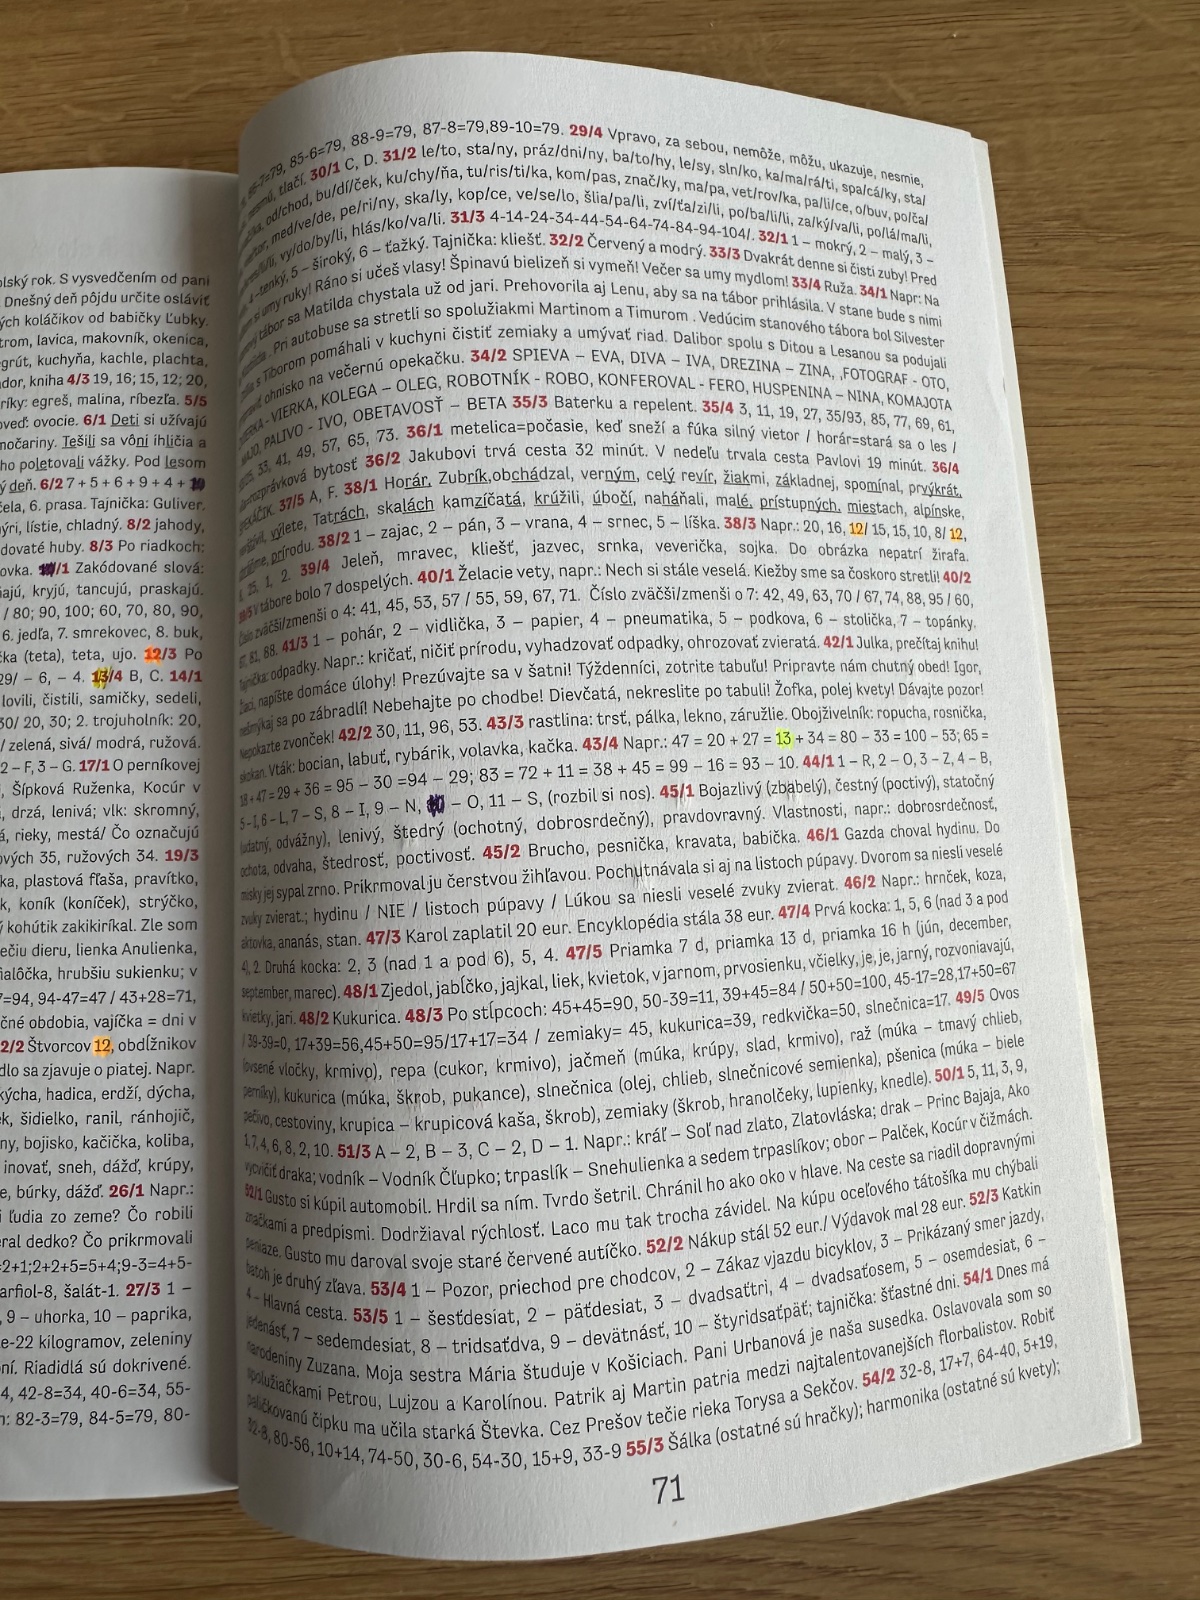 olský rok. S vysvedčením od pani
Dnešný deň pôjdu určite osláviť
ých koláčikov od babičky Ľubky.
trom, lavica, makovník, okenica,
egrút, kuchyňa, kachle, plachta,
dor, kniha 4/3 19, 16; 15, 12; 20,
ríky: egreš, malina, ríbezľa. 5/5
oveď: ovocie. 6/1 Deti si užívajú
močariny. Tešili sa vôni ihličia a
ho poletovali vážky. Pod lesom
ý deň. 6/2 7 + 5 + 6 + 9 + 4 +
čela, 6. prasa. Tajnička: Guliver.
ýri, lístie, chladný. 8/2 jahody,
dovaté huby. 8/3 Po riadkoch:
ovka. /1 Zakódované slová:
ajú, kryjú, tancujú, praskajú.
/ 80; 90, 100; 60, 70, 80, 90,
6. jedľa, 7. smrekovec, 8. buk,
čka (teta), teta, ujo. 12/3 Po
29/ – 6, – 4. 13/4 B, C. 14/1
lovili, čistili, samičky, sedeli,
30/ 20, 30; 2. trojuholník: 20,
/ zelená, sivá/ modrá, ružová.
2 – F, 3 – G. 17/1 O perníkovej
, Šípková Ruženka, Kocúr v
, drzá, lenivá; vlk: skromný,
á, rieky, mestá/ Čo označujú
ových 35, ružových 34. 19/3
ka, plastová fľaša, pravítko,
k, koník (koníček), strýčko,
ý kohútik zakikiríkal. Zle som
ečiu dieru, lienka Anulienka,
ialôčka, hrubšiu sukienku; v
7=94, 94-47=47 / 43+28=71,
čné obdobia, vajíčka = dni v
2/2 Štvorcov 12, obdĺžnikov
dlo sa zjavuje o piatej. Napr.
kýcha, hadica, erdží, dýcha,
ek, šidielko, ranil, ránhojič,
ny, bojisko, kačička, koliba,
inovať, sneh, dážď, krúpy,
e, búrky, dážď. 26/1 Napr.:
i ľudia zo zeme? Čo robili
eral dedko? Čo prikrmovali
2+1;2+2+5=5+4;9-3=4+5-
arfiol-8, šalát-1. 27/3 1 –
, 9 – uhorka, 10 – paprika,
e-22 kilogramov, zeleniny
ní. Riadidlá sú dokrivené.
4, 42-8=34, 40-6=34, 55-
n: 82-3=79, 84-5=79, 80-
85-6=79, 88-9=79, 87-8=79,89-10=79. 29/4 Vpravo, za sebou, nemôže, môžu, ukazuje, nesmie,
nesmú, tlačí. 30/1 C, D. 31/2 le/to, sta/ny, práz/dni/ny, ba/to/hy, le/sy, sln/ko, ka/ma/rá/ti, spa/cá/ky, sta/
od/chod, bu/dí/ček, ku/chy/ňa, tu/ris/ti/ka, kom/pas, znač/ky, ma/pa, vet/rov/ka, pa/li/ce, o/buv, po/ča/
med/ve/de, pe/ri/ny, ska/ly, kop/ce, ve/se/lo, šlia/pa/li, zví/ťa/zi/li, po/ba/li/li, za/ký/va/li, po/lá/ma/li,
vy/do/by/li, hlás/ko/va/li. 31/3 4-14-24-34-44-54-64-74-84-94-104/. 32/1 1 – mokrý, 2 – malý, 3 –
4 – tenký, 5 – široký, 6 – ťažký. Tajnička: kliešť. 32/2 Červený a modrý. 33/3 Dvakrát denne si čisti zuby! Pred
si umy ruky! Ráno si učeš vlasy! Špinavú bielizeň si vymeň! Večer sa umy mydlom! 33/4 Ruža. 34/1 Napr: Na
tábor sa Matilda chystala už od jari. Prehovorila aj Lenu, aby sa na tábor prihlásila. V stane bude s nimi
Pri autobuse sa stretli so spolužiakmi Martinom a Timurom . Vedúcim stanového tábora bol Silvester
s Tiborom pomáhali v kuchyni čistiť zemiaky a umývať riad. Dalibor spolu s Ditou a Lesanou sa podujali
ohnisko na večernú opekačku. 34/2 SPIEVA – EVA, DIVA – IVA, DREZINA – ZINA, ,FOTOGRAF - OTO,
VIERKA, KOLEGA – OLEG, ROBOTNÍK - ROBO, KONFEROVAL - FERO, HUSPENINA – NINA, KOMAJOTA
MAJO, PALIVO - IVO, OBETAVOSŤ – BETA 35/3 Baterku a repelent. 35/4 3, 11, 19, 27, 35/93, 85, 77, 69, 61,
33, 41, 49, 57, 65, 73. 36/1 metelica=počasie, keď sneží a fúka silný vietor / horár=stará sa o les /
rozprávková bytosť 36/2 Jakubovi trvá cesta 32 minút. V nedeľu trvala cesta Pavlovi 19 minút. 36/4
37/5 A, F. 38/1 Horár, Zubrík,obchádzal, verným, celý revír, žiakmi, základnej, spomínal, prvýkrát,
výlete, Tatrách, skalách kamzíčatá, krúžili, úbočí, naháňali, malé, prístupných, miestach, alpínske,
prírodu. 38/2 1 – zajac, 2 – pán, 3 – vrana, 4 – srnec, 5 – líška. 38/3 Napr.: 20, 16, 12/ 15, 15, 10, 8/ 12,
25, 1, 2. 39/4 Jeleň, mravec, kliešť, jazvec, srnka, veverička, sojka. Do obrázka nepatrí žirafa.
V tábore bolo 7 dospelých. 40/1 Želacie vety, napr.: Nech si stále veselá. Kiežby sme sa čoskoro stretli! 40/2
Číslo zväčši/zmenši o 4: 41, 45, 53, 57 / 55, 59, 67, 71. Číslo zväčši/zmenši o 7: 42, 49, 63, 70 / 67, 74, 88, 95 / 60,
67, 81, 88. 41/3 1 – pohár, 2 – vidlička, 3 – papier, 4 – pneumatika, 5 – podkova, 6 – stolička, 7 – topánky.
Tajnička: odpadky. Napr.: kričať, ničiť prírodu, vyhadzovať odpadky, ohrozovať zvieratá. 42/1 Julka, prečítaj knihu!
Žiaci, napíšte domáce úlohy! Prezúvajte sa v šatni! Týždenníci, zotrite tabuľu! Pripravte nám chutný obed! Igor,
nešmýkaj sa po zábradlí! Nebehajte po chodbe! Dievčatá, nekreslite po tabuli! Žofka, polej kvety! Dávajte pozor!
Nepokazte zvonček! 42/2 30, 11, 96, 53. 43/3 rastlina: trsť, pálka, lekno, záružlie. Obojživelník: ropucha, rosnička,
skokan. Vták: bocian, labuť, rybárik, volavka, kačka. 43/4 Napr.: 47 = 20 + 27 = 13 + 34 = 80 – 33 = 100 – 53; 65 =
18 + 47 = 29 + 36 = 95 – 30 =94 – 29; 83 = 72 + 11 = 38 + 45 = 99 – 16 = 93 – 10. 44/1 1 – R, 2 – O, 3 – Z, 4 – B,
5 – I, 6 – L, 7 – S, 8 – I, 9 – N, – O, 11 – S, (rozbil si nos). 45/1 Bojazlivý (zbabelý), čestný (poctivý), statočný
(udatný, odvážny), lenivý, štedrý (ochotný, dobrosrdečný), pravdovravný. Vlastnosti, napr.: dobrosrdečnosť,
ochota, odvaha, štedrosť, poctivosť. 45/2 Brucho, pesnička, kravata, babička. 46/1 Gazda choval hydinu. Do
misky jej sypal zrno. Prikrmoval ju čerstvou žihľavou. Pochutnávala si aj na listoch púpavy. Dvorom sa niesli veselé
zvuky zvierat.; hydinu / NIE / listoch púpavy / Lúkou sa niesli veselé zvuky zvierat. 46/2 Napr.: hrnček, koza,
aktovka, ananás, stan. 47/3 Karol zaplatil 20 eur. Encyklopédia stála 38 eur. 47/4 Prvá kocka: 1, 5, 6 (nad 3 a pod
4), 2. Druhá kocka: 2, 3 (nad 1 a pod 6), 5, 4. 47/5 Priamka 7 d, priamka 13 d, priamka 16 h (jún, december,
september, marec). 48/1 Zjedol, jabĺčko, jajkal, liek, kvietok, v jarnom, prvosienku, včielky, je, je, jarný, rozvoniavajú,
kvietky, jari. 48/2 Kukurica. 48/3 Po stĺpcoch: 45+45=90, 50-39=11, 39+45=84 / 50+50=100, 45-17=28,17+50=67
/ 39-39=0, 17+39=56,45+50=95/17+17=34 / zemiaky= 45, kukurica=39, redkvička=50, slnečnica=17. 49/5 Ovos
(ovsené vločky, krmivo), repa (cukor, krmivo), jačmeň (múka, krúpy, slad, krmivo), raž (múka – tmavý chlieb,
perníky), kukurica (múka, škrob, pukance), slnečnica (olej, chlieb, slnečnicové semienka), pšenica (múka – biele
pečivo, cestoviny, krupica – krupicová kaša, škrob), zemiaky (škrob, hranolčeky, lupienky, knedle). 50/1 5, 11, 3, 9,
1, 7, 4, 6, 8, 2, 10. 51/3 A – 2, B – 3, C – 2, D – 1. Napr.: kráľ – Soľ nad zlato, Zlatovláska; drak – Princ Bajaja, Ako
vycvičiť draka; vodník – Vodník Čľupko; trpaslík – Snehulienka a sedem trpaslíkov; obor – Palček, Kocúr v čižmách.
52/1 Gusto si kúpil automobil. Hrdil sa ním. Tvrdo šetril. Chránil ho ako oko v hlave. Na ceste sa riadil dopravnými
značkami a predpismi. Dodržiaval rýchlosť. Laco mu tak trocha závidel. Na kúpu oceľového tátošíka mu chýbali
peniaze. Gusto mu daroval svoje staré červené autíčko. 52/2 Nákup stál 52 eur./ Výdavok mal 28 eur. 52/3 Katkin
batoh je druhý zľava. 53/4 1 – Pozor, priechod pre chodcov, 2 – Zákaz vjazdu bicyklov, 3 – Prikázaný smer jazdy,
4 – Hlavná cesta. 53/5 1 – šesťdesiat, 2 – päťdesiat, 3 – dvadsaťtri, 4 – dvadsaťosem, 5 – osemdesiat, 6 –
jedenásť, 7 – sedemdesiat, 8 – tridsaťdva, 9 – devätnásť, 10 – štyridsaťpäť; tajnička: šťastné dni. 54/1 Dnes má
narodeniny Zuzana. Moja sestra Mária študuje v Košiciach. Pani Urbanová je naša susedka. Oslavovala som so
spolužiačkami Petrou, Lujzou a Karolínou. Patrik aj Martin patria medzi najtalentovanejších florbalistov. Robiť
paličkovanú čipku ma učila starká Števka. Cez Prešov tečie rieka Torysa a Sekčov. 54/2 32-8, 17+7, 64-40, 5+19,
32-8, 80-56, 10+14, 74-50, 30-6, 54-30, 15+9, 33-9 55/3 Šálka (ostatné sú hračky); harmonika (ostatné sú kvety);
71